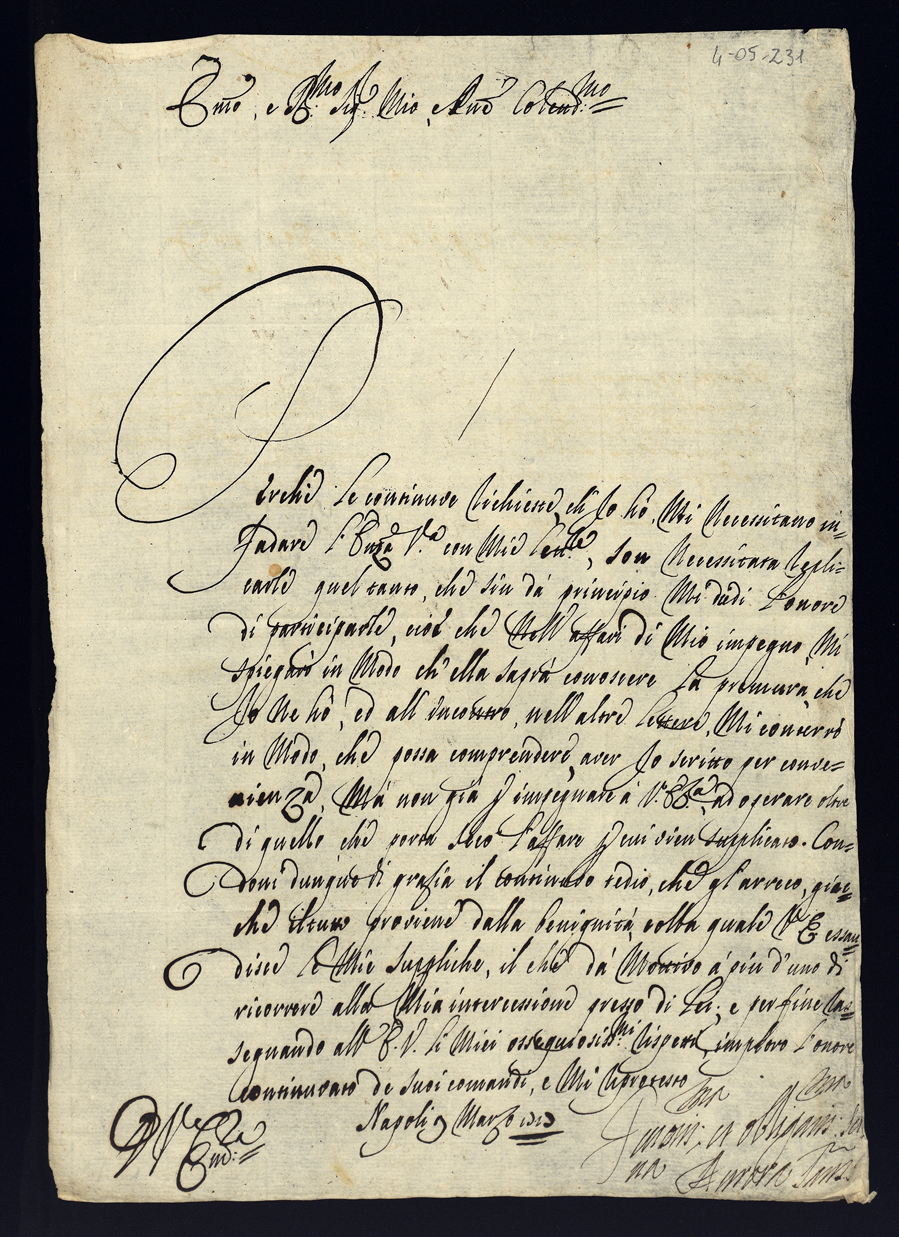 4-05-231
Em̃o, e R.mo Sig.r Mio, e Pñe Colend.mo
Perche le continue richieste, ch'Io hò, Mi Necessitano in=
fadare l'Em̃za V.a con Mie, son Necessitata repli=
carle quel tanto, che sin da principio Mi diedi l'onore
di participarle, cioè che Nell'affari di Mio impegno, Mi
spiegarò in Modo ch'ella saprà conoscere la premura, che
Io Ne hò, ed all'incontro, nell'altre lettere, Mi conterrò
in Modo, che possa comprendere, aver Io scritto per conve=
nienza, Mà non già p impegnare à V. Em̃za, ad operare oltre
di quello che porta seco l'affare p cui vien supplicato. Con=
doni dunque di grazia il continuo tedio, che gl'arreco, giac=
che il tutto proviene dalla benignità, colla quale V.E. essau
disce le Mie suppliche, il che dà Motivo à più d'uno di
ricorrere alla Mia intercessione presso di Lei; e per fine ras=
segnando all'E.V. li Miei ossequiosiss.mi rispetti, imploro l'onore
continuato de suoi comandi, e Mi riprotesto
Napoli Marzo
D V.ra Em̃za
et obligatis. Ser
na Aurora Sans